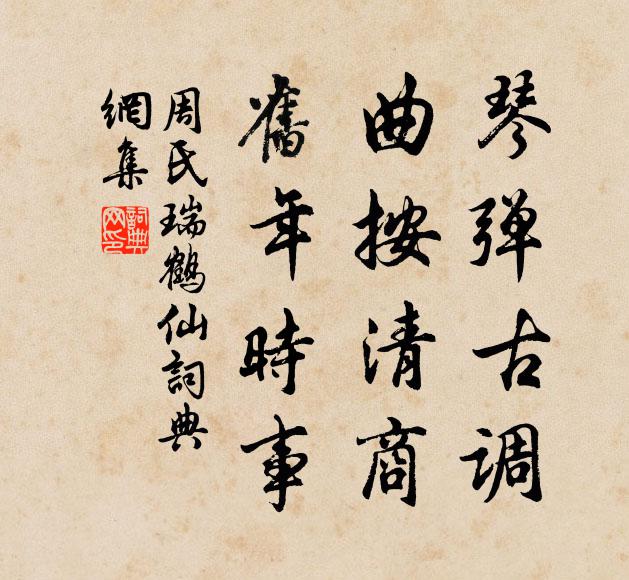 琴弹古调
曲按清商
舊年時事
周氏瑞鶴仙詞典
網集
詞典網印